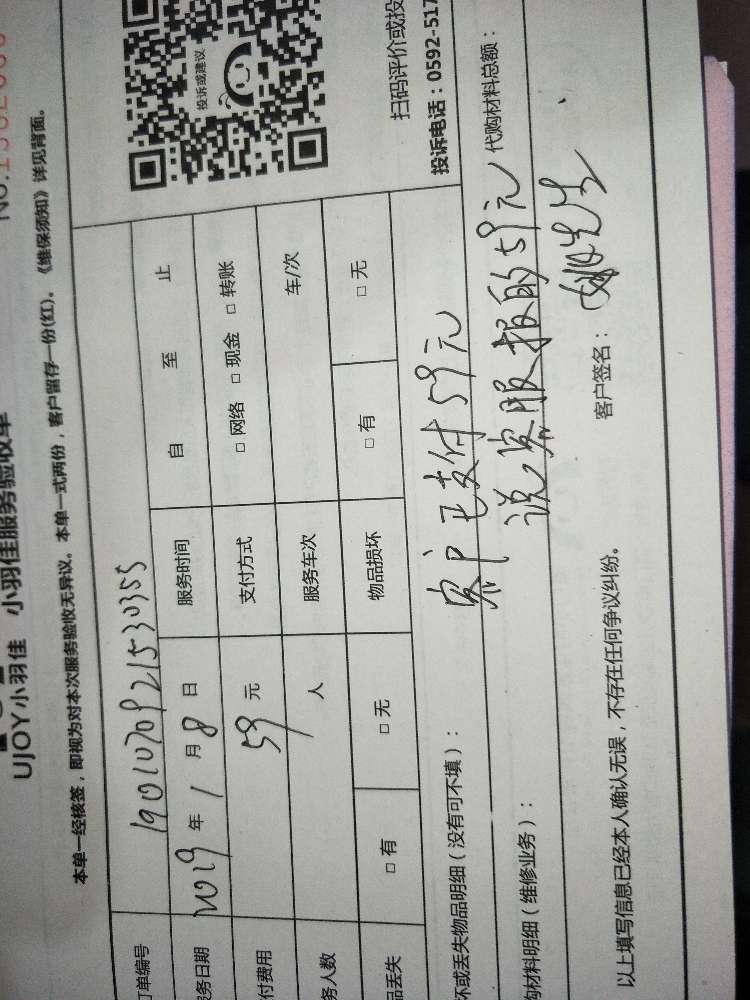 UJOY小羽佳 小羽佳服务验收单
NO.1502
本单一经核签，即视为对本次服务验收无异议。本单一式两份，客户留存一份(红)。《维保须知》详见背面。
订单编号 1901070921530355
服务日期 2019 年 1 月 8 日 服务时间 自 至 止
付费用 59 元 支付方式 □ 网络 □ 现金 □ 转账
务人数 人 服务车次 车/次
品丢失 □ 有 □ 无 物品损坏 □ 有 □ 无
投诉或建议
扫码评价或投
投诉电话：0592-517
坏或丢失物品明细（没有可不填）：
客户已支付59元
购材料明细（维修业务）：
说客服报的59元
代购材料总额：
以上填写信息已经本人确认无误，不存在任何争议纠纷。 客户签名： 姚先生